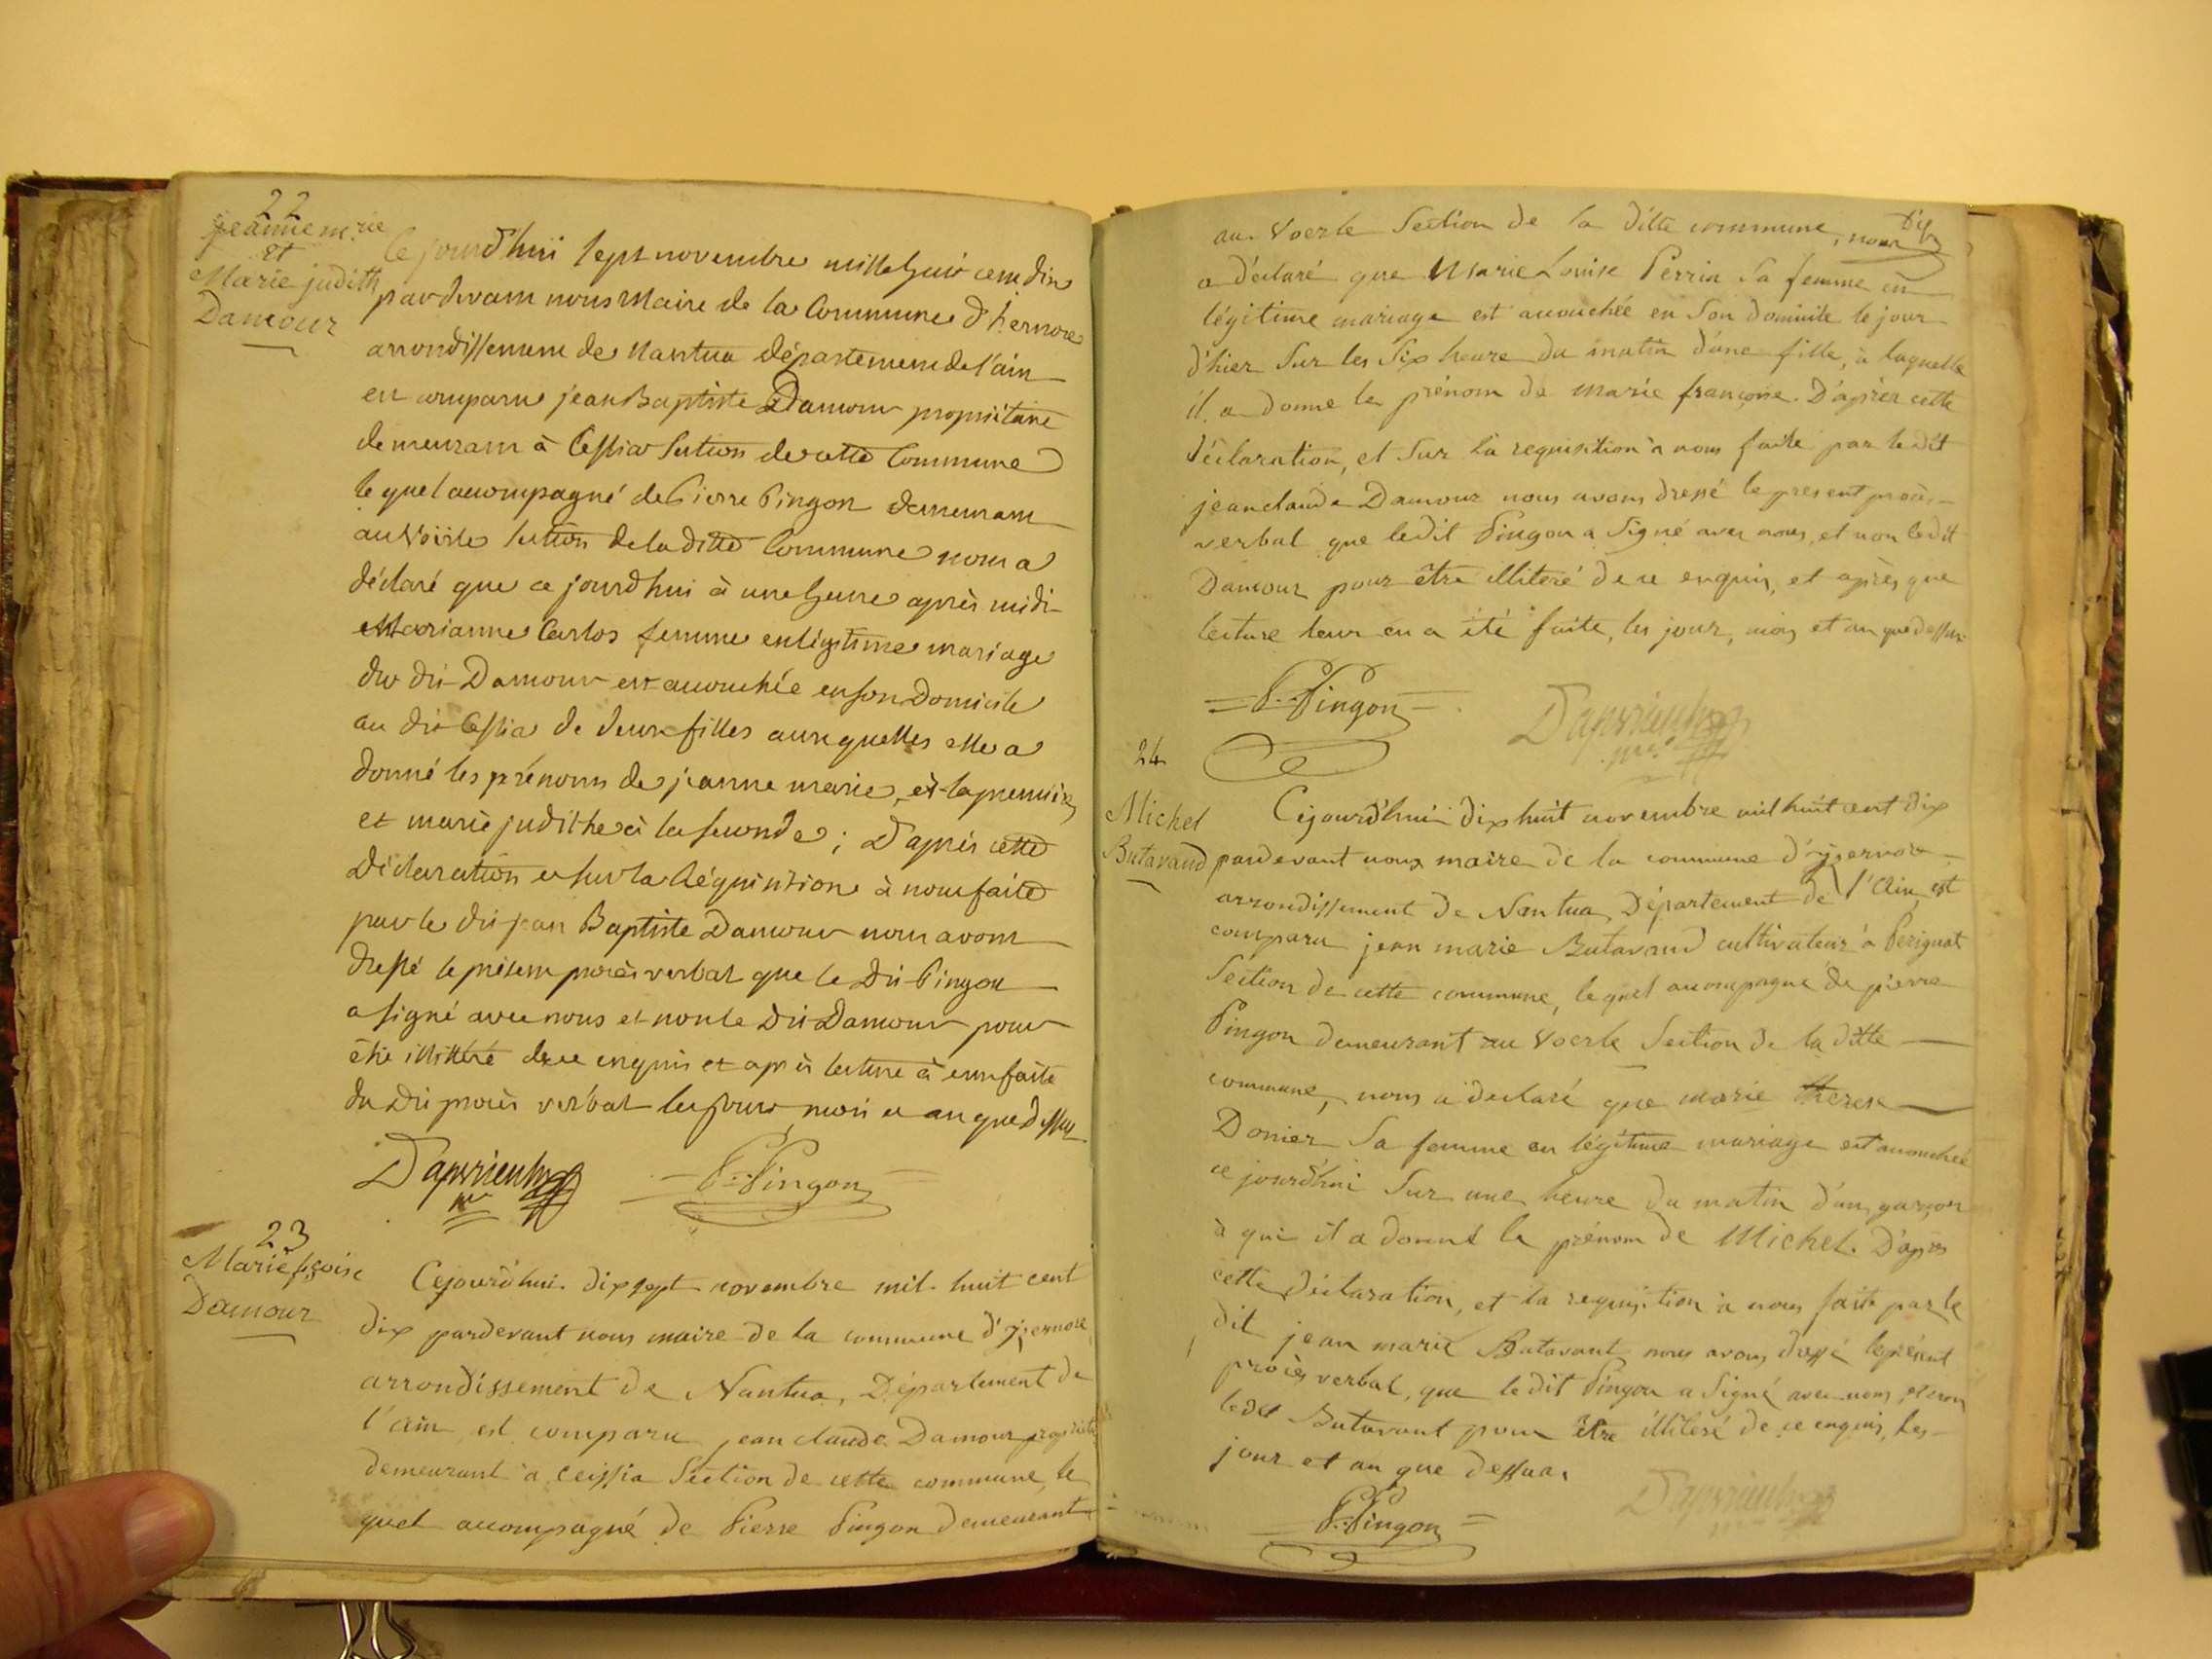 22
jeanne m.rie
et
Marie judith
Damour
Ce jourd'hui sept novembre mille huit cent dix
pardevant nous Maire de la Commune d'
arrondissement de Nantua département de l'ain
est comparu jean Baptiste Damour propriétaire
demeurant à Cessia section de cette Commune
lequel accompagné de Pierre Pingon demeurant
au Voerle section de la ditte Commune nous a
déclaré que ce jourd'hui à une heure après midi
Marianne Carlos femme en légitime mariage
du dit Damour est accouchée en son Domicile
au dit Cessia de deux filles auxquelles elle a
donné les prénoms de jeanne marie, à la premiere
et marie judithe à la seconde; D'après cette
Déclaration et sur la Réquisition à nous faite
par le dit jean Baptiste Damour nous avons
dressé le présent procès verbal que le dit Pingon
a signé avec nous et non le dit Damour pour
être illittéré de ce enquis et après lecture à eux faite
du dit procès verbal les jour, mois et an que dessus
P. Pingon
23
Marie fçoise
Damour
Cejourd'hui dix sept novembre mil huit cent
dix pardevant nous maire de la commune d'yzernore,
arrondissement de Nantua, Département de
l'ain est comparu jean claude Damour propriétaire
demeurant à Ceissia Section de cette commune, le
quel accompagné de Pierre Pingon demeurant
au Voerle Section de la ditte commune, nous
a déclaré que Marie Louise Perrin sa femme en
légitime mariage est accouchée en son domicile le jour
d'hier sur les six heure du matin d'une fille, à laquelle
il a donné le prénom de marie françoise. D'après cette
déclaration, et sur la requisition à nous faite par ledit
jean claude Damour nous avons dressé le present procès-
verbal que ledit Pingon a signé avec nous, et non ledit
Damour pour être illiteré de ce enquis, et après que
lecture leur en a été faite, les jour, mois et an que dessus
P. Pingon
24
Michel
Butavand
Cejourd'hui dix huit novembre mil huit cent dix
pardevant nous maire de la commune d'yzernore
arrondissement de Nantua, Département de l'Ain, est
comparu jean marie Butavand cultivateur à Perignat
Section de cette commune, lequel accompagné de pierre
Pingon demeurant au Voerle Section de la ditte
commune, nous a déclaré que marie therese
Donier sa femme en légitime mariage est accouchée
ce jourd'hui sur une heure du matin d'un garçon
à qui il a donné le prénom de Michel. D'après
cette déclaration, et la requisition à nous faite par le
dit jean marie Butavant nous avons dressé le présent
procès verbal, que le dit Pingon a signé avec nous, et non
ledit Butavant pour être illiteré de ce enquis, les
jour et an que dessus.
P. Pingon